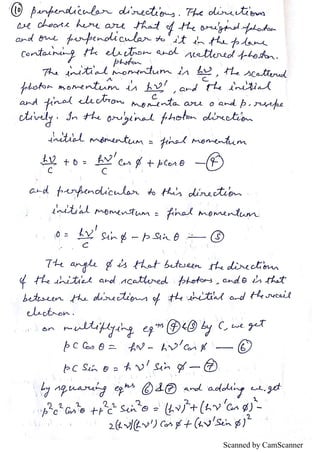 ⑩ perpendicular directions. The directions
we choose here are that of the original photon
and one perpendicular to it in the plane
containing the electron and scattered photon.
The initial photon momentum is hν/c, the scattered
photon momentum is hν'/c, and the initial
and final electron momenta are 0 and p. respe
ctively. In the original photon direction
initial momentum = final momentum
hν/c + 0 = hν'/c Cos φ + p Cos θ — ④
and perpendicular to this direction
initial momentum = final momentum
0 = hν'/c Sin φ - p Sin θ — ⑤
The angle φ is that between the directions
of the initial and scattered photons, and θ is that
between the directions of the initial and the recoil
electron.
on multiplying eqns ④ & ⑤ by C, we get
p C Cos θ = hν - hν' Cos φ — ⑥
p C Sin θ = hν' Sin φ — ⑦
by squaring eqns ⑥ & ⑦ and adding we get
p²c² Cos²θ + p²c² Sin²θ = (hν)² + (hν' Cos φ)² -
2(hν)(hν') Cos φ + (hν' Sin φ)²
Scanned by CamScanner